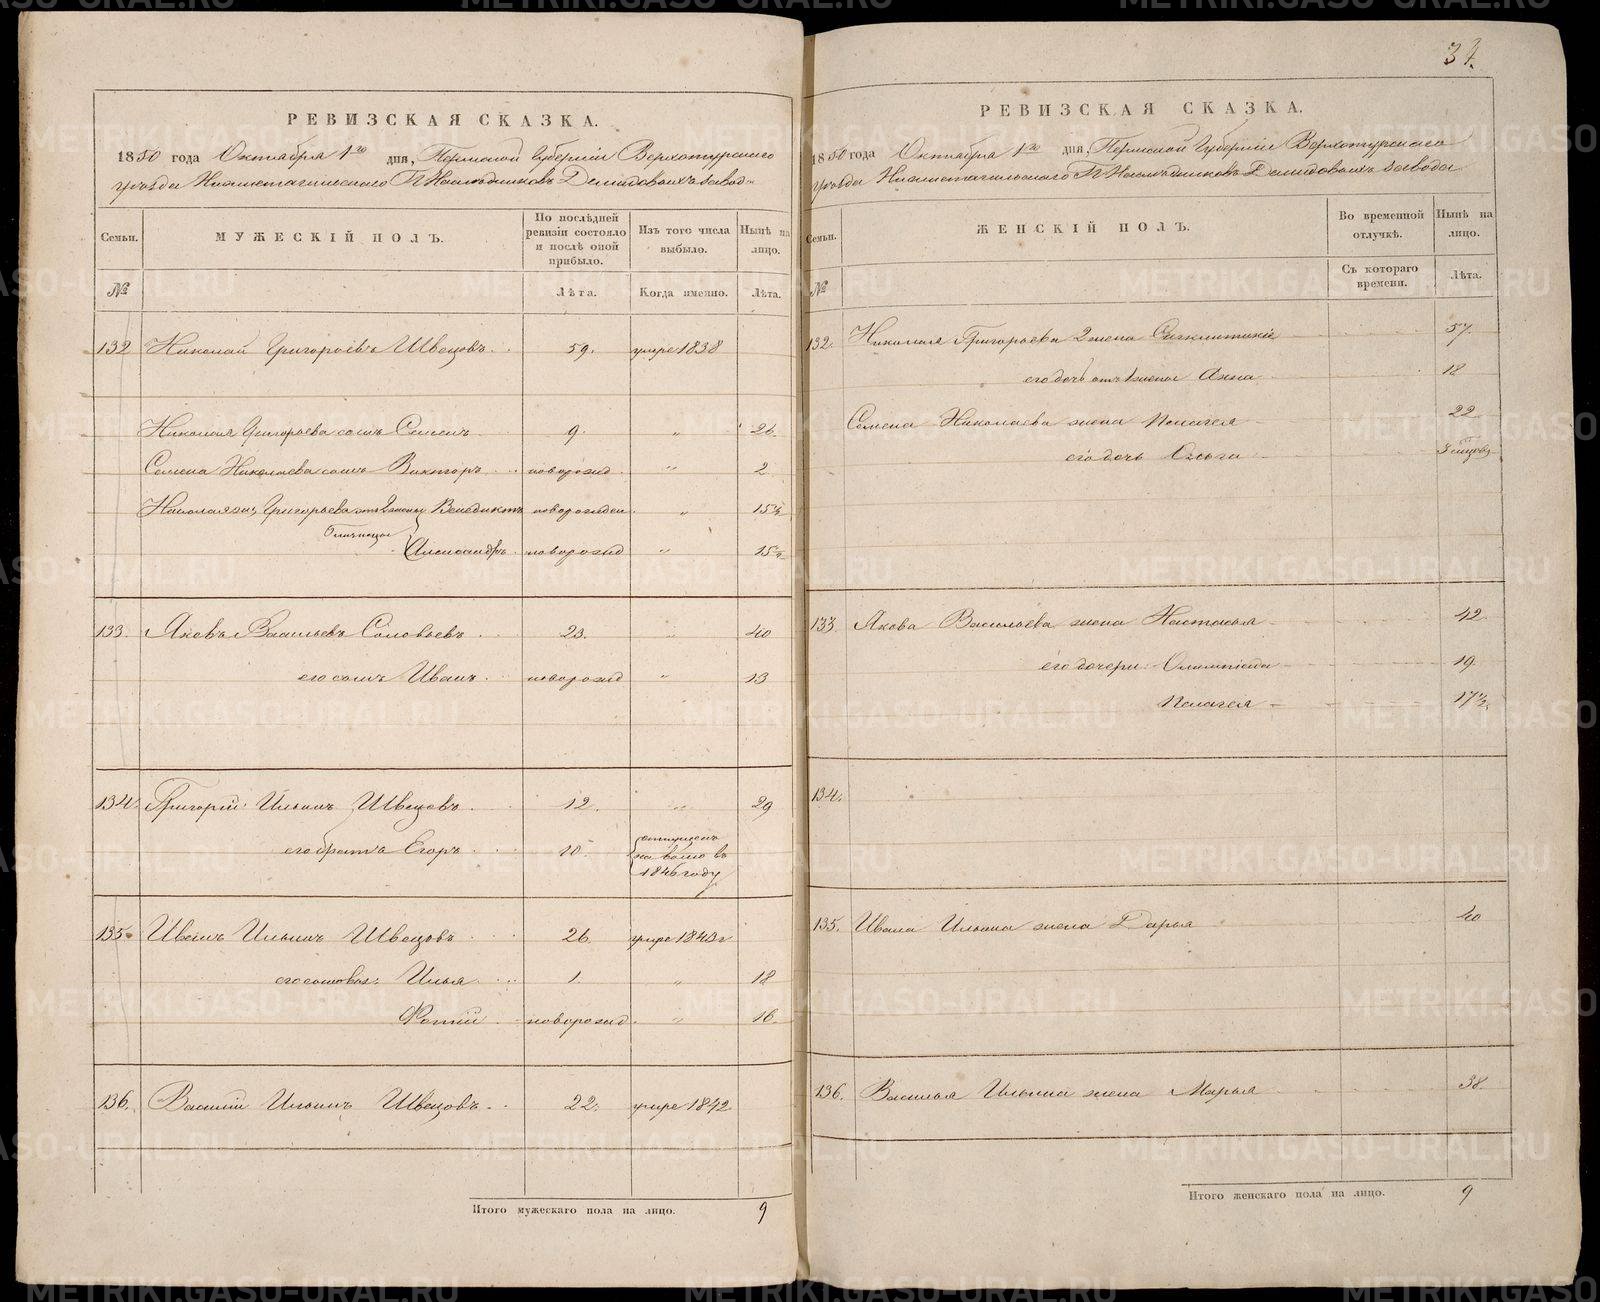 РЕВИЗСКАЯ СКАЗКА.
1850 года Октября 1го дня, Пермской Губерніи Верхотурскаго
уѣзда Нижнетагильскаго Г. Наслѣдниковъ Демидовыхъ завод
Семьи.
МУЖЕСКІЙ ПОЛЪ.
По послѣдней ревизіи состояло и послѣ оной прибыло.
Изъ того числа выбыло.
Нынѣ на лицо.
№
Лѣта.
Когда именно.
Лѣта.
132 Николай Григорьевъ Швецовъ 59. умре 1838
Николая Григорьева сынъ Семенъ 9. " 26.
Семена Николаева сынъ Викторъ новорожд. " 2
Николая Григорьева отъ 2 жены Венедиктъ новорожден. " 15½
Близнецы
Александръ новорожд " 15½
133. Яковъ Васильевъ Соловьевъ 23. " 40
его сынъ Иванъ новорожд " 13
134. Григорій Ильинъ Швецовъ 12. " 29
его братъ Егоръ 10. отпущенъ
на волю въ
1846 году
135. Иванъ Ильинъ Швецовъ 26. умре 1843 г
его сыновья: Илья 1. " 18
Фотій новорожд. " 16.
136. Василій Ильинъ Швецовъ 22. умре 1842
Итого мужескаго пола на лицо. 9
37.
РЕВИЗСКАЯ СКАЗКА.
1850 года Октября 1го дня, Пермской Губерніи Верхотурскаго
уѣзда Нижнетагильскаго Г. Наслѣдниковъ Демидовыхъ завода
Семьи.
ЖЕНСКІЙ ПОЛЪ.
Во временной отлучкѣ.
Нынѣ на лицо.
№
Съ котораго времени.
Лѣта.
132. Николая Григорьева 2 жена Сигклитикія 57.
его дочь отъ 1 жены Анна 18
Семена Николаева жена Пелагея 22
его дочь Ольга 3 мѣсцовъ
133 Якова Васильева жена Настасья 42
его дочери: Олимпіада 19.
Пелагея 17½
134.
135. Ивана Ильина жена Дарья 40
136. Василья Ильина жена Марья 38
Итого женскаго пола на лицо. 9
METRIKI.GASO-URAL.RU